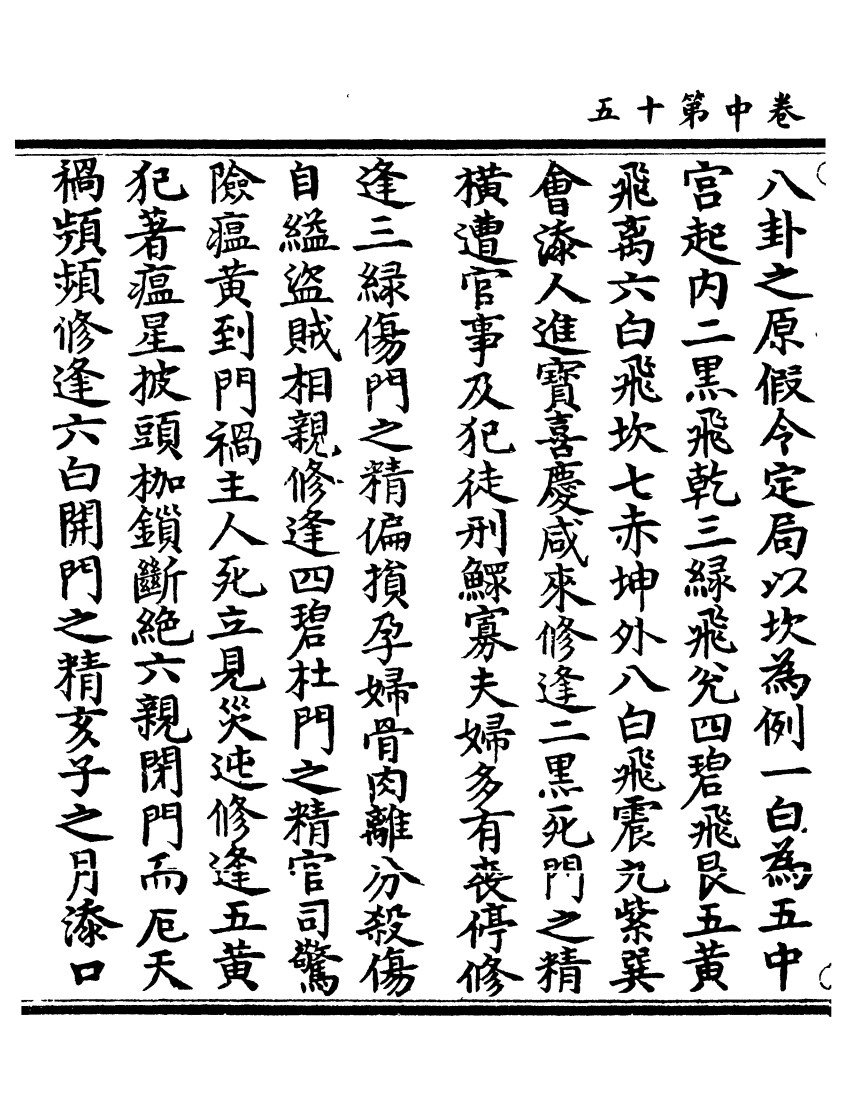 卷中第十五
八卦之原假令定局以坎為例一白為五中
宫起内二黒飛乾三緑飛兊四碧飛艮五黄
飛离六白飛坎七赤坤外八白飛震九紫巽
會添人進寳喜慶咸來修逢二黒死門之精
横遭官事及犯徒刑鰥寡夫婦多有丧停修
逢三緑傷門之精偏損孕婦骨肉離分殺傷
自縊盜賊相親修逢四碧杜門之精官司驚
險瘟黄到門禍主人死立見災迍修逢五黄
犯著瘟星披頭枷鎖斷絶六親閉門而厄天
禍頻頻修逢六白開門之精亥子之月添口